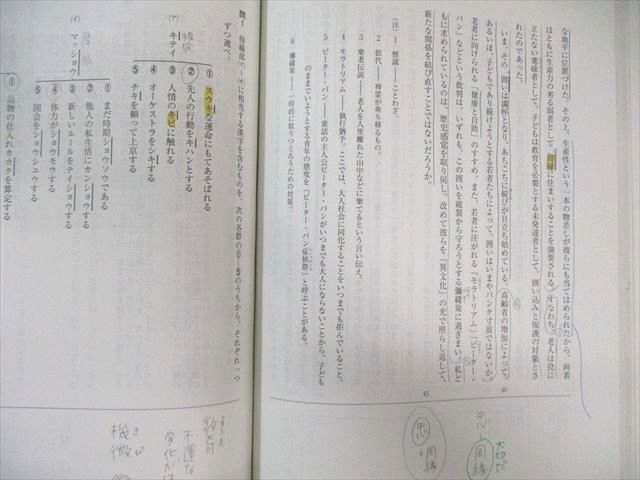 な地平に位置づけた。その上、生産性という一本の物差しが彼らにも当てはめられたから、両者
はともに生産力の劣る弱者として、周縁に住まいすることを強要される。すなわち、老人は役に
立たない廃残者として、子どもは教育を必要とする未発達者として、囲い込みと保護の対象とさ
れたのであった。
いま、その囲いは満杯となり、あちこちに綻びが目立ち始めている。高齢者の増加によって、
あるいは、子どもであり続けようとする若者たちによって、囲いはいまやパンクす前ではないか。
老者に向けられる「健康と自助」のすすめ、また、若者に注がれる「モラトリアム」「ピーター・
パン」などという批判は、いずれも、この囲いを破裂から守ろうとする彌縫策に過ぎまい。私ど
もに求められているのは、歴史感覚を取り戻し、改めて彼らを「異文化」の光で照らし返して、
新たな関係を結び直すことではないだろうか。
40
45
(注)
1 俚諺――ことわざ。
2 依代――神霊が乗り移るもの。
3 棄老伝説――老人を人里離れた山中などに棄てるという言い伝え。
4 モラトリアム――執行猶予。ここでは、大人社会に同化することをいつまでも拒んでいること。
5 ピーター・パン――童話の主人公ピーター・パンがいつまでも大人にならないことから、子ども
のままでいようとする青年の態度を「ピーター・パン症候群」と呼ぶことがある。
6 彌縫策――一時的に取りつくろうための対策。
忠
周縁
大切で
忠
周縁
問1 傍線部(ア)
に相当する漢字を含むものを、次の各群の①~⑤のうちから、それぞれ一つ
ずつ選べ。
(ア) キテイ
規定
① スウキな運命にもてあそばれる
② 先人の行動をキハンとする
③ 人情のキビに触れる
④ オーケストラをシキする
⑤ チキを頼って上京する
(イ) マッショウ
① まだ時期ショウソウである
② 他人の私生活にカンショウする
③ 新しいルールをテイショウする
④ 体力がショウモウする
⑤ 国会をショウシュウする
① 品物の仕入れカカクを算定する
数奇
不運な
機微